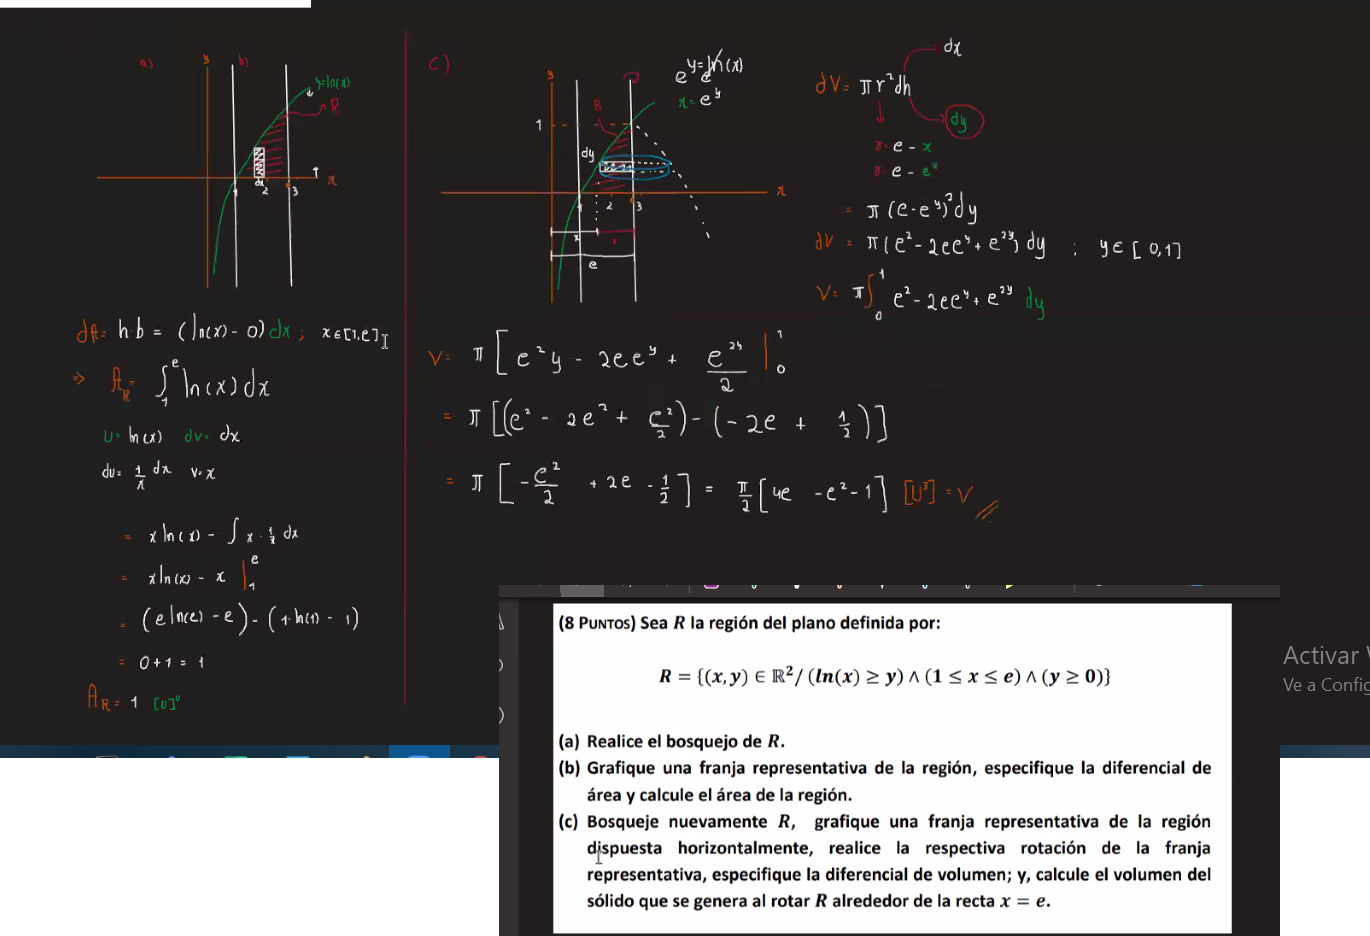 a)
y
b)
y=ln(x)
R
x
dx
1 2 3
dA= h·b = (ln(x) - 0) dx ; x∈[1,e]
=> A_R= ∫₁ᵉ ln(x) dx
U= ln(x) dv= dx
du= 1/x dx v=x
= x ln(x) - ∫ x · 1/x dx
= x ln(x) - x |₁ᵉ
= (e ln(e) - e) - (1·ln(1) - 1)
= 0+1 = 1
A_R= 1 [U]²
c)
y
y=ln(x)
e e
x= eʸ
R
1
dy
x
1 2 3
x r
e
dV= πr²dh
dx
dy
r= e - x
r= e - eʸ
= π(e-eʸ)²dy
dV = π(e² - 2eeʸ + e²ʸ) dy ; y∈[0,1]
V= π∫₀¹ e² - 2eeʸ + e²ʸ dy
V= π[e²y - 2eeʸ + e²ʸ/2 |₀¹
= π[(e² - 2e² + e²/2) - (-2e + 1/2)]
= π[-e²/2 + 2e - 1/2] = π/2[4e - e² - 1] [U³] = V
(8 PUNTOS) Sea R la región del plano definida por:
R = {(x, y) ∈ ℝ²/ (ln(x) ≥ y) ∧ (1 ≤ x ≤ e) ∧ (y ≥ 0)}
(a) Realice el bosquejo de R.
(b) Grafique una franja representativa de la región, especifique la diferencial de
área y calcule el área de la región.
(c) Bosqueje nuevamente R, grafique una franja representativa de la región
dispuesta horizontalmente, realice la respectiva rotación de la franja
representativa, especifique la diferencial de volumen; y, calcule el volumen del
sólido que se genera al rotar R alrededor de la recta x = e.
Activar
Ve a Config